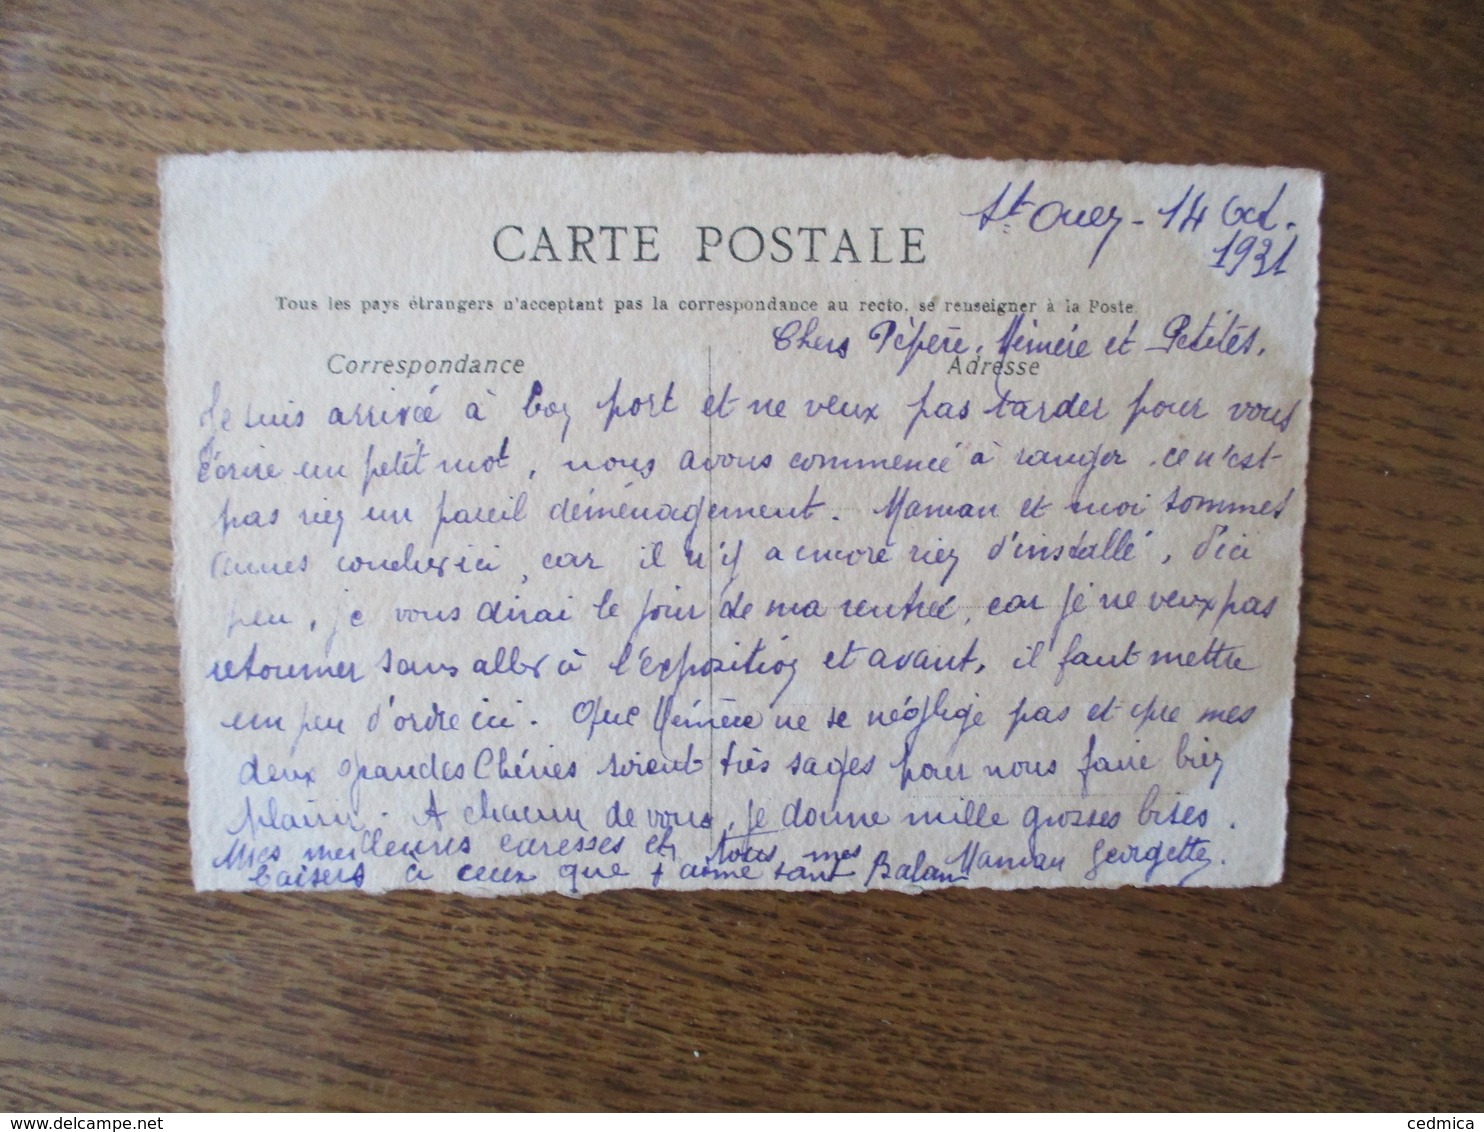 St Ouen - 14 Oct.
1931
CARTE POSTALE
Tous les pays étrangers n'acceptant pas la correspondance au recto, se renseigner à la Poste
Chers Pépère, Mémère et Petites,
Correspondance
Adresse
Je suis arrivée à bon port et ne veux pas tarder pour vous
écrire un petit mot, nous avons commencé à ranger. ce n'est
pas rien un pareil déménagement. Maman et moi sommes
coucher ici, car il n'y a encore rien d'installé, d'ici
peu, je vous dirai le jour de ma rentrée, car je ne veux pas
retourner sans aller à l'exposition et avant, il faut mettre
un peu d'ordre ici. Que Mémère ne se néglige pas et que mes
deux grandes Chéries soient très sages pour nous faire bien
plaisir. A chacun de vous, je donne mille grosses bises.
Mes meilleures caresses et tous mes
baisers à ceux que j'aime tant Maman Georgette.